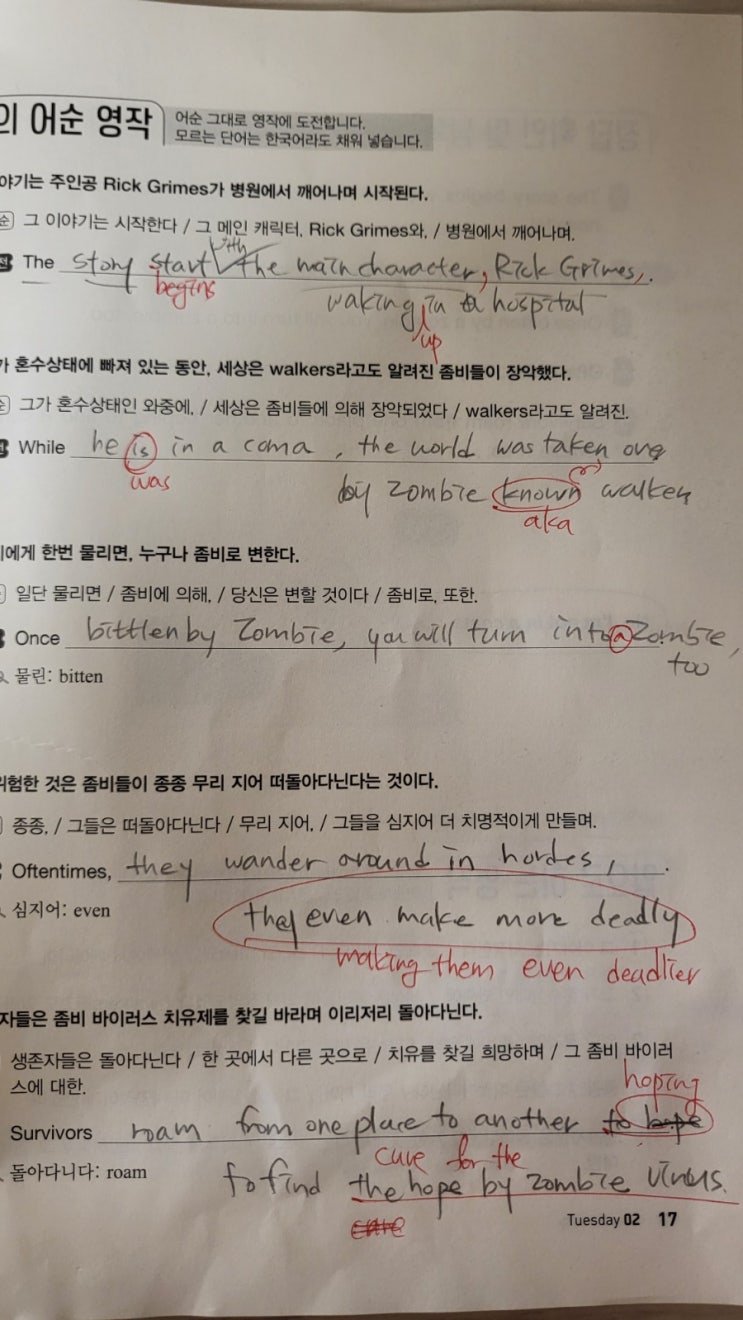 의 어순 영작
어순 그대로 영작에 도전합니다.
모르는 단어는 한국어라도 채워 넣습니다.
야기는 주인공 Rick Grimes가 병원에서 깨어나며 시작된다.
순 그 이야기는 시작한다 / 그 메인 캐릭터, Rick Grimes와, / 병원에서 깨어나며.
with
The story start the main character, Rick Grimes,.
begins
waking in a hospital
up
가 혼수상태에 빠져 있는 동안, 세상은 walkers라고도 알려진 좀비들이 장악했다.
순 그가 혼수상태인 와중에, / 세상은 좀비들에 의해 장악되었다 / walkers라고도 알려진.
While he is in a coma, the world was taken
was
by zombie known
aka
에게 한번 물리면, 누구나 좀비로 변한다.
일단 물리면 / 좀비에 의해, / 당신은 변할 것이다 / 좀비로, 또한.
Once bittlen by Zombie, you will turn into a Zombie,
too
물린: bitten
위험한 것은 좀비들이 종종 무리 지어 떠돌아다닌다는 것이다.
종종, / 그들은 떠돌아다닌다 / 무리 지어, / 그들을 심지어 더 치명적이게 만들며.
Oftentimes, they wander around in hordes, .
심지어: even
they even make more deadly
making them even deadlier
자들은 좀비 바이러스 치유제를 찾길 바라며 이리저리 돌아다닌다.
생존자들은 돌아다닌다 / 한 곳에서 다른 곳으로 / 치유를 찾길 희망하며 / 그 좀비 바이러
스에 대한.
hoping
Survivors roam from one place to another to hope
cure for the
돌아다니다: roam
to find the hope by zombie virus.
cure
Tuesday 02 17